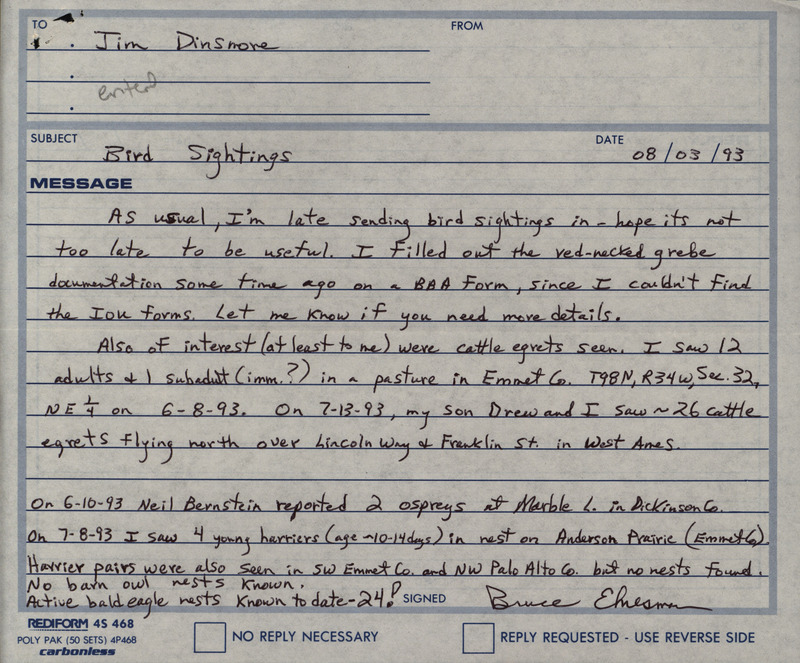 TO
Jim Dinsmore
FROM
entered
SUBJECT
Bird Sightings
DATE
08/03/93
MESSAGE
As usual, I'm late sending bird sightings in - hope its not
too late to be useful. I filled out the red-necked grebe
documentation some time ago on a BAA form, since I couldn't find
the IOU forms. Let me know if you need more details.
Also of interest (at least to me) were cattle egrets seen. I saw 12
adults & 1 subadult (imm.?) in a pasture in Emmet Co. T98N, R34W, Sec. 32,
NE 1/4 on 6-8-93. On 7-13-93, my son Drew and I saw ~26 cattle
egrets flying north over Lincoln Way & Franklin St. in West Ames.
On 6-10-93 Neil Bernstein reported 2 ospreys at Marble L. in Dickinson Co.
On 7-8-93 I saw 4 young harriers (age ~10-14 days) in nest on Anderson Prairie (Emmet Co).
Harrier pairs were also seen in SW Emmet Co. and NW Palo Alto Co. but no nests found.
No barn owl nests known.
Active bald eagle nests known to date - 24!
SIGNED
Bruce Ehresman
REDIFORM 4S 468
POLY PAK (50 SETS) 4P468
carbonless
NO REPLY NECESSARY
REPLY REQUESTED - USE REVERSE SIDE